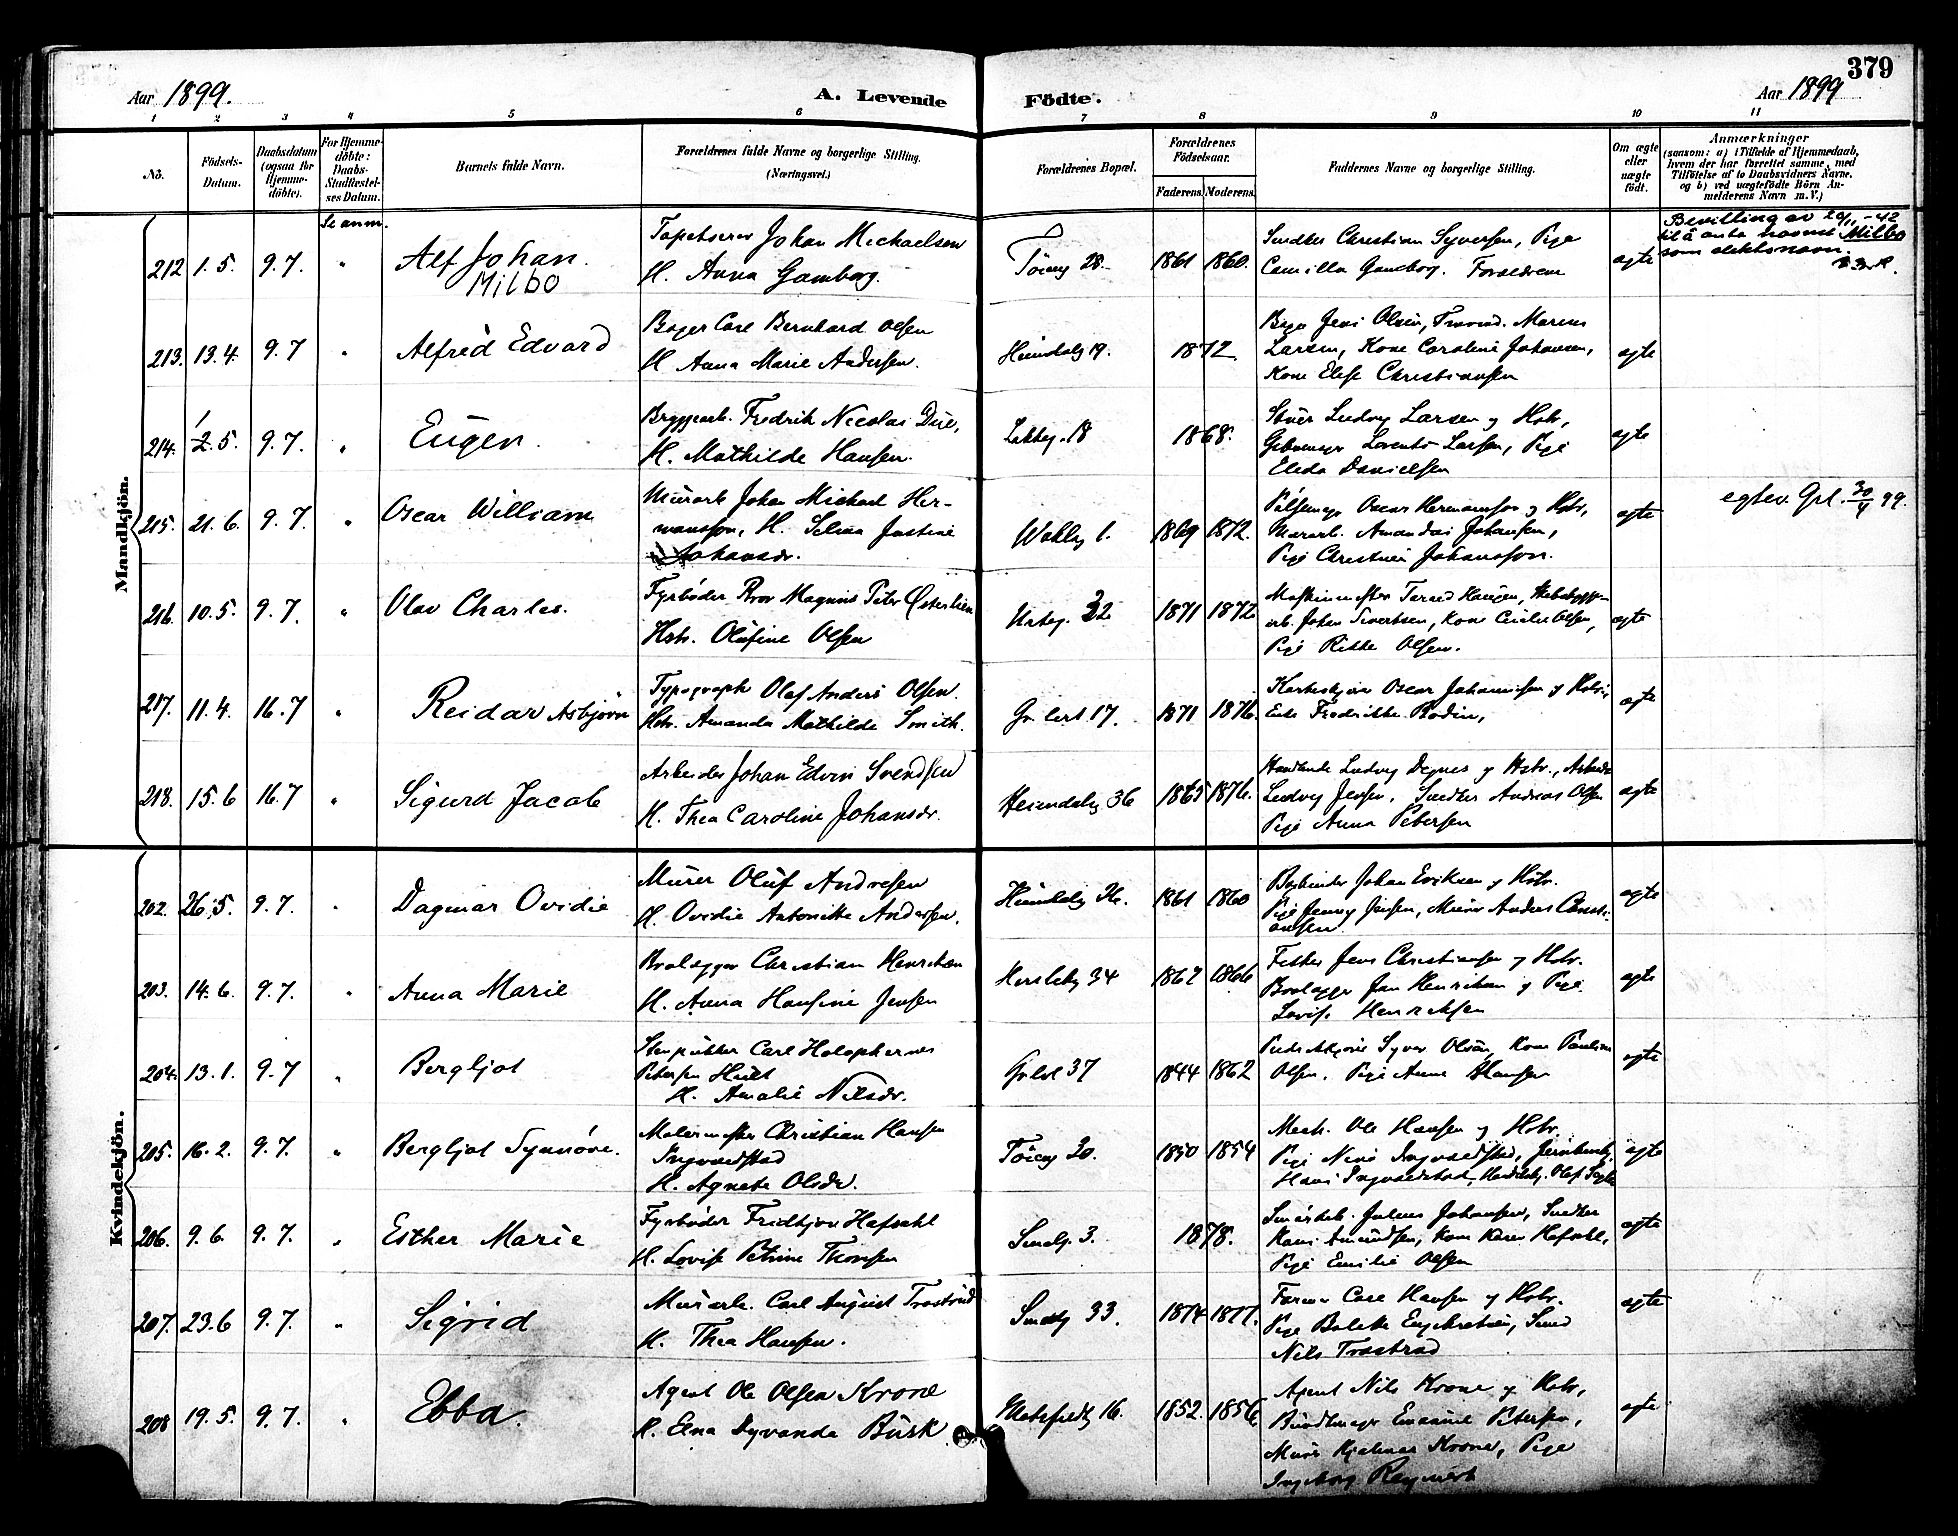 379
Aar 1899.
A. Levende Födte.
Aar 1899
1 2 3 4 5 6 7 8 9 10 11
No.
Födsels-
Datum.
Daabsdatum
(ogsaa for
Hjemme-
döbte).
For Hjemme-
döbte:
Daabs-
Stadfæstel-
ses Datum.
Barnets fulde Navn.
Forældrenes fulde Navne og borgerlige Stilling.
(Næringsvei.)
Forældrenes Bopæl.
Forældrenes
Födselsaar.
Faderens. Moderens.
Faddernes Navne og borgerlige Stilling.
Om ægte
eller
uægte
født.
Anmærkninger
(saasom: a) i Tilfælde af Hjemmedaab,
hvem der har forrettet samme, med
Tilföielse af to Daabsvidners Navne,
og b) ved uægtefödte Börn An-
melderens Navn m. V.)
Mandkjön.
Se anm.
212 1.5. 9.7. "
Alf Johan
Milbo
Tapetserer Johan Michaelsen
H. Anna Gamborg.
Töieng 28. 1861 1860.
Snedker Christian Syversen, Pige
Camilla Gamborg. Forældrene
ægte
Bevilling av
til å anta navnet Milbo
som slektsnavn.
213. 13.4. 9.7 "
Alfred Edvard
Bager Carl Bernhard Olsen
H. Anna Marie Andersen.
Heimdalsg 19. 1872.
Bager Jens Olsen, Marius
Larsen, Kone Caroline Johansen,
Kone Elise Christiansen
ægte
214. 1/2.5. 9.7. "
Eugen.
Bryggearb. Fredrik Nicolai Due,
H. Mathilde Hansen.
Lakkeg. 18 1868.
Ludvig Larsen og Hstr,
Larsen, Pige
Danielsen
ægte
215. 21.6. 9.7. "
Oscar William
Murarb. Johan Michael Her-
mansson, H. Selma Justine
Johansdr.
1. 1869 1872.
Pölsemager Oscar Hermansson og Hstr,
Murarb. Johansen,
Pige Johansson.
ægte
egtev. Grl. 30/4 99.
216. 10.5. 9.7. "
Olav Charles.
Fyrböder Magnus Peter Österlien
Hstr. Olufine Olsen
Urteg. 32 1871 1872
Maskinmester Haugen,
arb. Johan Sivertsen, Kone Olsen,
Pige Rikke Olsen.
ægte
217. 11.4. 16.7 "
Reidar Asbjörn
Typograph Olaf Anders Olsen.
Hstr. Amanda Mathilde Smith.
Gr.lert 17. 1871 1876.
Oscar Johannesen og Hstr,
Enke Fredrikke Bodin,
ægte
218. 15.6 16.7 "
Sigurd Jacob
Arbeider Johan Edvin Svendsen
H. Thea Caroline Johansdr.
Heimdalsg 36 1865 1876.
Handlende Ludvig Degnes og Hstr., Arbeider
Ludvig Jensen, Snedker Andreas Olsen
Pige Anna Petersen
ægte
Kvindekjön.
202. 26.5. 9.7. "
Dagmar Ovidie
Murer Oluf Andresen
H. Ovidie Antonette Andersen.
Heimdalsg 26. 1861 1860
Bogbinder Johan Eriksen og Hstr.
Pige Jenny Jensen, Murer Anders Christi-
ansen
ægte
203. 14.6. 9.7. "
Anna Marie
Brolægger Christian Henriksen
H. Anna Hansine Jensen
Hersleby 34 1867 1866
Jens Christiansen og Hstr.
Brolægger Jan Henriksen og Pige
Lovise Henriksen
ægte
204. 13.1. 9.7 "
Bergljot
Stenpukker Carl Holophernes
Petersen Hult
H. Amalie Nilsdr.
Grl.st 37 1844 1862
Syver Olsen, Kone Pauline
Olsen, Pige Anna Hansen
ægte
205. 16.2. 9.7. "
Bergljot Synnöve.
Malermester Christian Hansen
Ingvaldstad
H. Agnete Olsdr.
Töieng 20. 1850 1854
Mech. Ole Hansen og Hstr.
Pige Ingvaldstad,
Hans Ingvaldstad, Olaf
ægte
206. 9.6. 9.7. "
Esther Marie
Fyrböder Fridtjov Hafsahl
H. Lovise Petrine Thomsen
Smalg. 3. 1878.
Julius Johansen, Snedker
Hans Amundsen, Kone Karen Hafsahl,
Pige Emilie Olsen
ægte
207. 23.6 9.7. "
Sigrid
Murarb. Carl August Trostrud
H. Thea Hansen.
Smedg 33. 1874 1877.
Former Carl Hansen og Hstr.
Pige Engebretsen, Smed
Nils Trostrud
ægte
208 19.5. 9.7. "
Ebba.
Agent Ole Olsen Krone
H. Elna Dyvanda Busk
16. 1852. 1856.
Agent Nils Krone og Hstr,
Buntmager Emanuel Petersen,
Murer Hjalmar Krone, Pige
Ingeborg Reymert
ægte